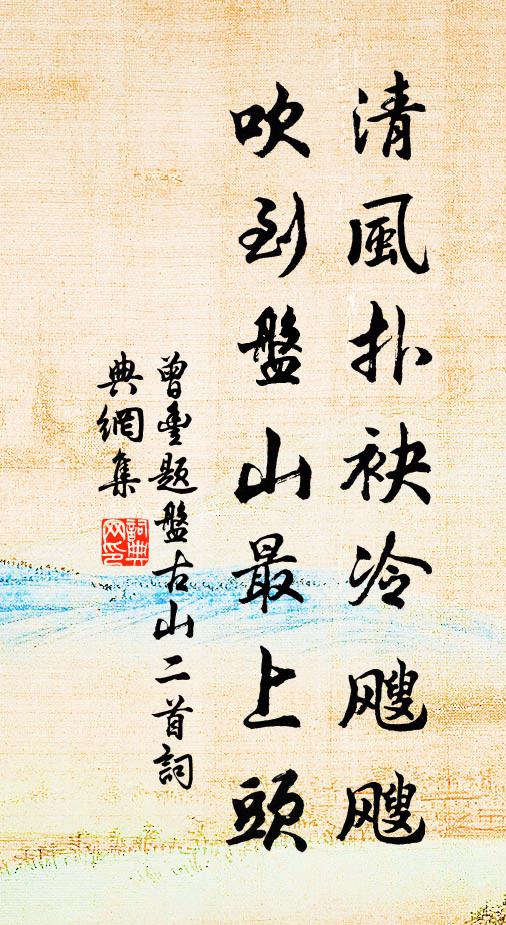 清風扑袂冷颼颼
吹到盤山最上頭
曾豊題盤古山二首詞
典網集
詞典
网印